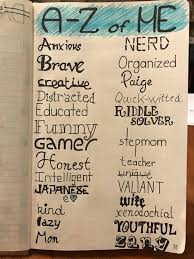 A-Z of ME
Anxious
Brave
creative
Distracted
Educated
Funny
GAMER
Honest
Intelligent
JAPANESE
kind
lazy
Mom
NERD
Organized
Paige
Quick-witted
RIDDLE
SOLVER
stepmom
teacher
unique
VALIANT
wife
xenodochial
YOUTHFUL
zany